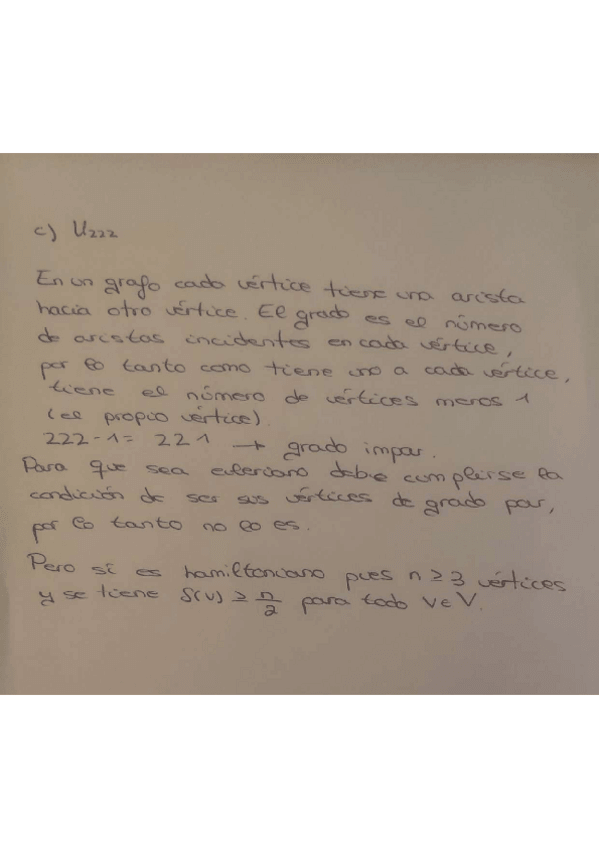 c) U₂₂₂
En un grafo cada vértice tiene una arista
hacia otro vértice. El grado es el número
de aristas incidentes en cada vértice,
por lo tanto como tiene uno a cada vértice,
tiene el número de vértices menos 1
(el propio vértice).
222-1= 221 → grado impar.
Para que sea euleriano debe cumplirse la
condición de ser sus vértices de grado par,
por lo tanto no lo es.
Pero sí es hamiltoniano pues n ≥ 3 vértices
y se tiene δ(v) ≥ n/2 para todo v∈V.